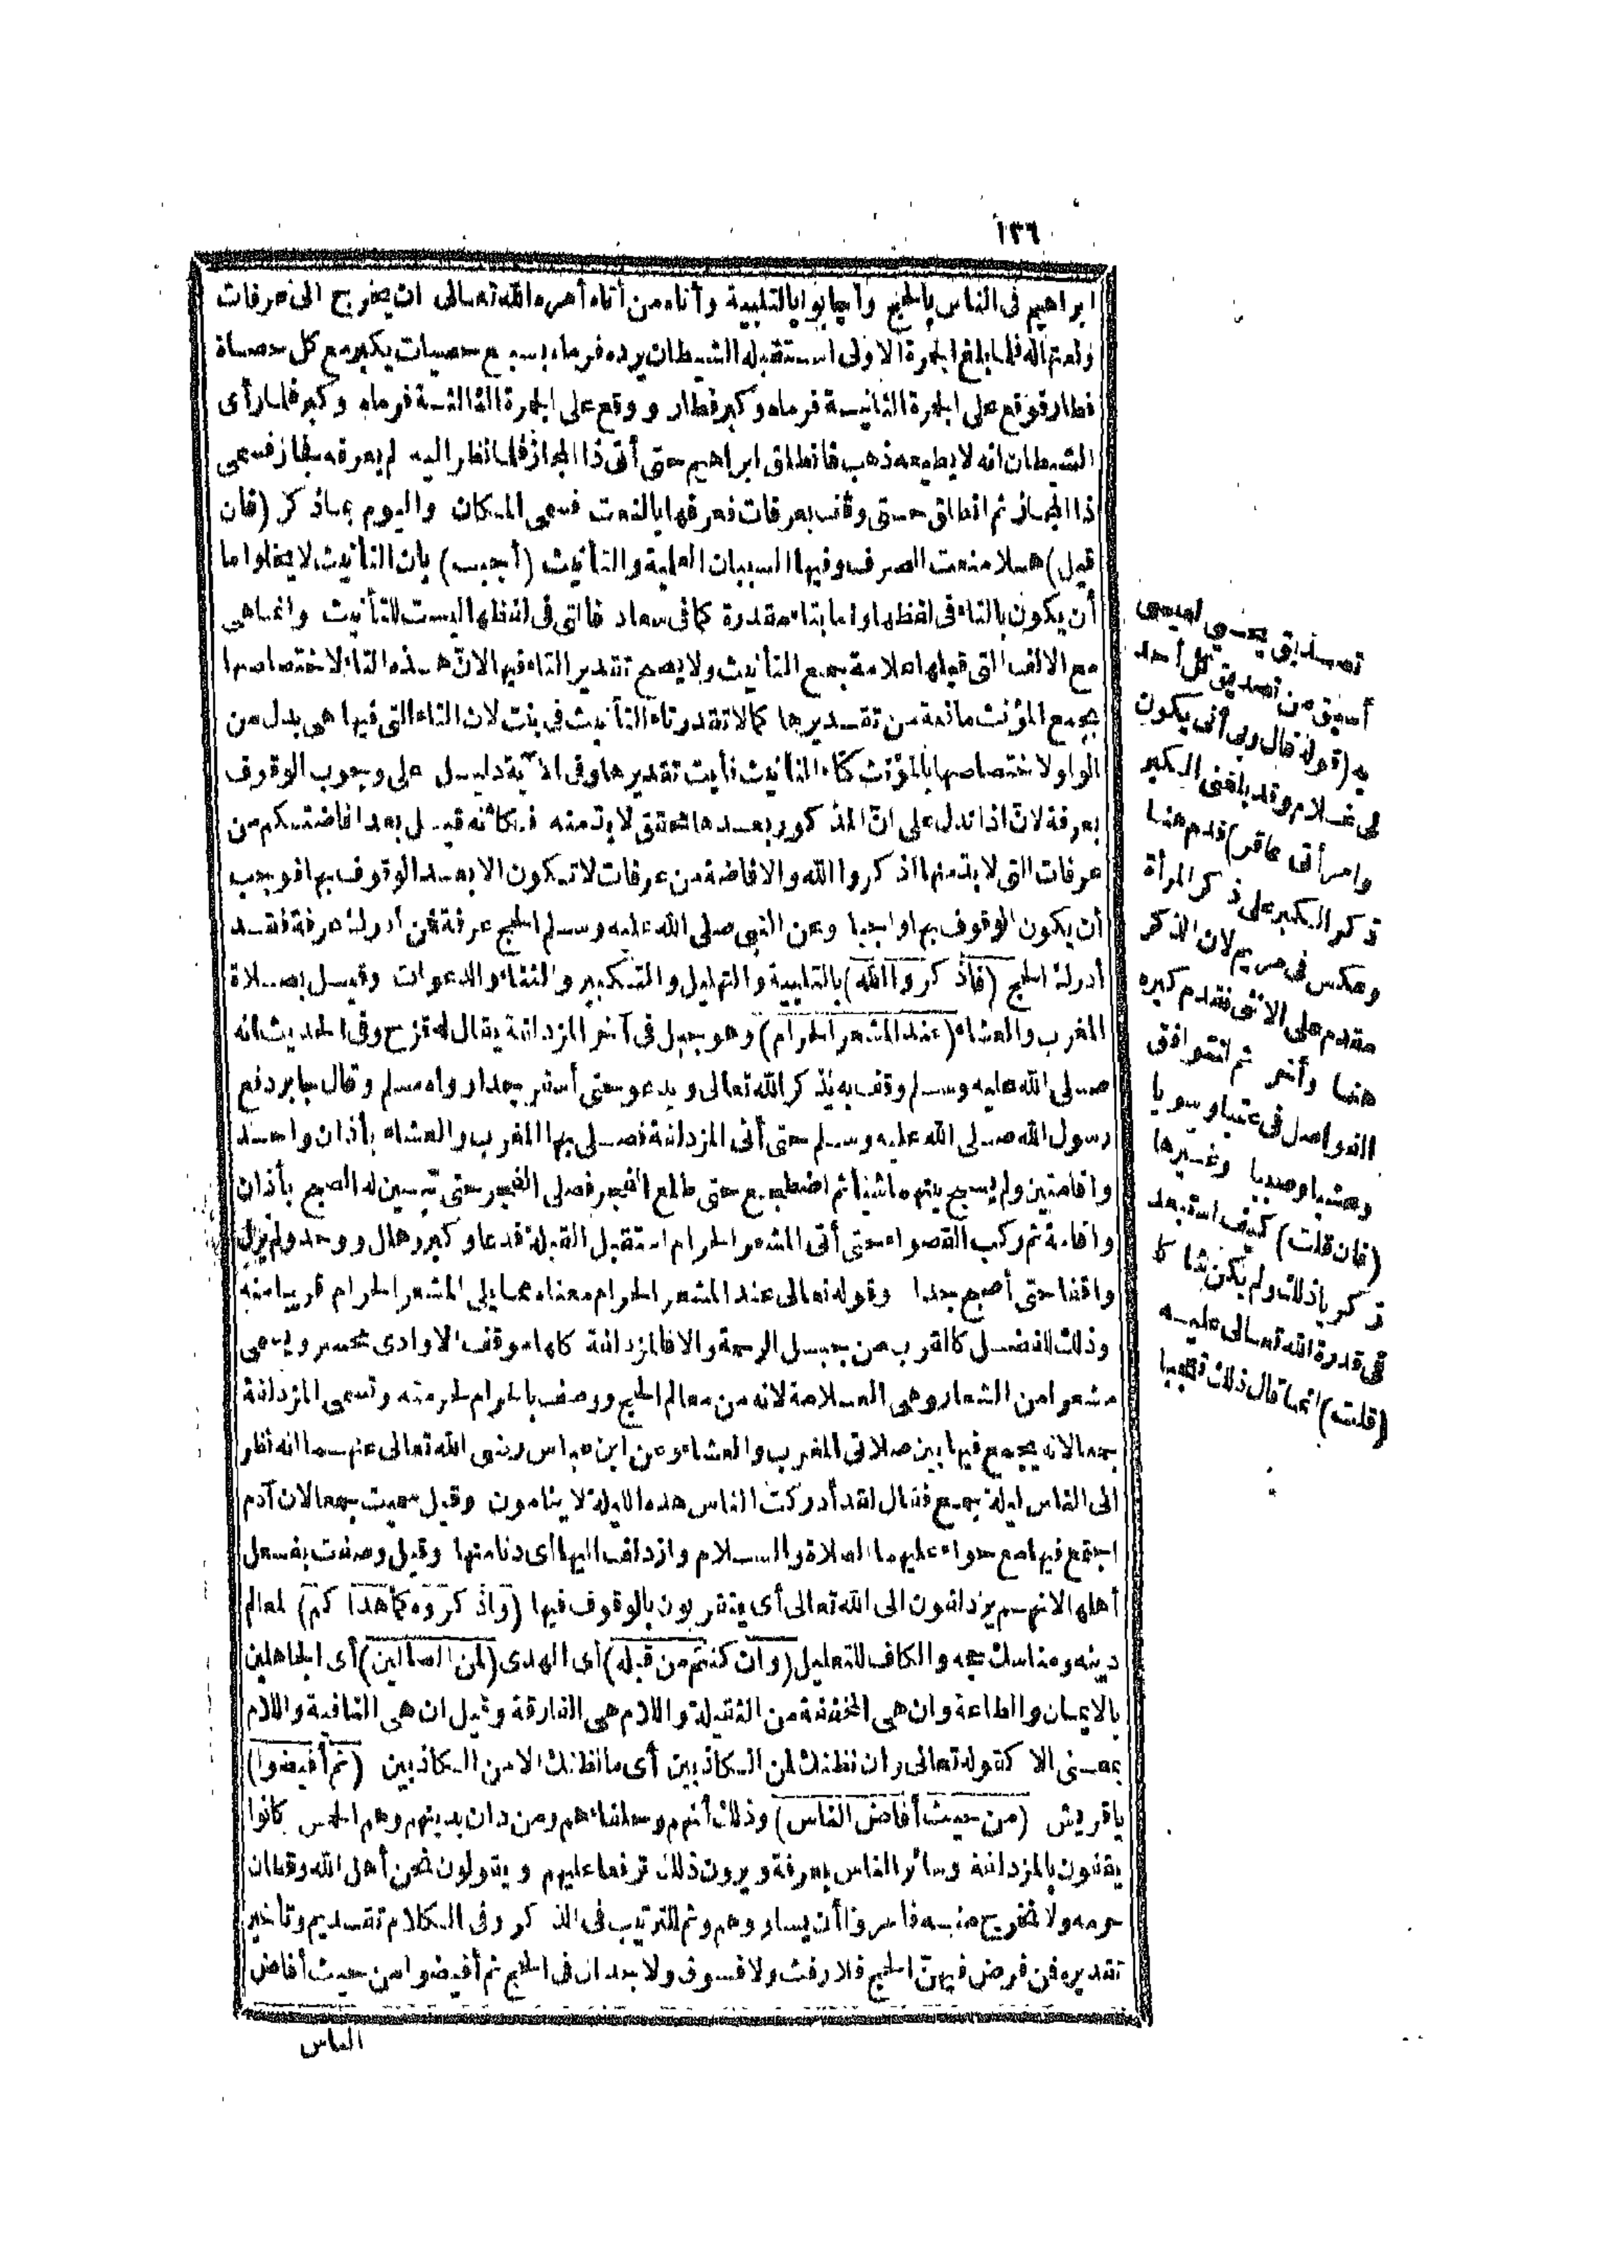 ١٣٦
ابراهيم فى الناس بالحج وأجابوا بالتلبية وأتاه من أتاه أمره الله تعالى ان يخرج الى عرفات
ونعتها له فلما بلغ الجمرة الاولى استقبله الشيطان يرده فرماه بسبع حصيات يكبر مع كل حصاة
فطار فوقع على الجمرة الثانية فرماه وكبر فطار ووقع على الجمرة الثالثة فرماه وكبر فلما رأى
الشيطان انه لا يطيعه ذهب فانطلق ابراهيم حتى أتى ذا المجاز فلما نظر اليه لم يعرفه فجاز فسمى
ذا المجاز ثم انطلق حتى وقف بعرفات فعرفها بالنعت فسمى المكان واليوم بما ذكر (فان
قيل) هلا منعت الصرف وفيها السببان العلمية والتأنيث (أجيب) بان التأنيث لا يخلو اما
أن يكون بالتاء فى لفظها واما بتاء مقدرة كما فى سعاد فالتى فى لفظها ليست للتأنيث وانما هى
مع الالف التى قبلها علامة جمع التأنيث ولا يصح تقدير التاء فيها لانّ هذه التاء لاختصاصها
بجمع المؤنث مانعة من تقديرها كما لا تقدر تاء التأنيث فى بنت لان التاء التى فيها هى بدل من
الواو لاختصاصها بالمؤنث كتاء التأنيث فأبت تقديرها وفى الآية دليل على وجوب الوقوف
بعرفة لانّ اذا تدل على انّ المذكور بعدها محقق لا بدّ منه فكأنه قيل بعد افاضتكم من
عرفات التى لا بدّ منها اذكروا الله والافاضة من عرفات لا تكون الا بعد الوقوف بها فوجب
أن يكون الوقوف بها واجبا وعن النبى صلى الله عليه وسلم الحج عرفة فمن أدرك عرفة فقد
أدرك الحج (فاذكروا الله) بالتلبية والتهليل والتكبير والثناء والدعوات وقيل بصلاة
المغرب والعشاء (عند المشعر الحرام) وهو جبل فى آخر المزدلفة يقال له قزح وفى الحديث انه
صلى الله عليه وسلم وقف به يذكر الله تعالى ويدعو حتى أسفر جدا رواه مسلم وقال جابر دفع
رسول الله صلى الله عليه وسلم حتى أتى المزدلفة فصلى بها المغرب والعشاء بأذان واحد
واقامتين ولم يسبح بينهما شيأ ثم اضطجع حتى طلع الفجر فصلى الفجر حتى تبين له الصبح بأذان
واقامة ثم ركب القصواء حتى أتى المشعر الحرام استقبل القبلة فدعا وكبر وهلل ووحد ولم يزل
واقفا حتى أصبح جدا وقوله تعالى عند المشعر الحرام معناه مما يلى المشعر الحرام قريبا منه
وذلك للفضل كالقرب من جبل الرحمة والا فالمزدلفة كلها موقف الا وادى محسر ويسمى
مشعرا من الشعار وهى العلامة لانه من معالم الحج ووصف بالحرام لحرمته وتسمى المزدلفة
جمعا لانه يجمع فيها بين صلاتى المغرب والعشاء وعن ابن عباس رضى الله تعالى عنهما انه نظر
الى الناس ليلة جمع فقال لقد أدركت الناس هذه الليلة لا ينامون وقيل سميت جمعا لان آدم
اجتمع فيها مع حواء عليهما الصلاة والسلام وازدلف اليها أى دنا منها وقيل وصفت بفعل
أهلها لانهم يزدلفون الى الله تعالى أى يتقربون بالوقوف فيها (واذكروه كما هداكم) لمعالم
دينه ومناسك حجه والكاف للتعليل (وان كنتم من قبله) أى الهدى (لمن الضالين) أى الجاهلين
بالايمان والطاعة وان هى المخففة من الثقيلة واللام هى الفارقة وقيل ان هى النافية واللام
بمعنى الا كقوله تعالى وان نظنك لمن الكاذبين أى ما نظنك الا من الكاذبين (ثم أفيضوا)
يا قريش (من حيث أفاض الناس) وذلك أنهم وحلفاءهم ومن دان بدينهم وهم الحمس كانوا
يقفون بالمزدلفة وسائر الناس بعرفة ويرون ذلك ترفعا عليهم ويقولون نحن أهل الله وقطان
حرمه ولا نخرج منه فأمروا أن يساووهم وثم للترتيب فى الذكر وفى الكلام تقديم وتأخير
تقديره فمن فرض فيهنّ الحج فلا رفث ولا فسوق ولا جدال فى الحج ثم أفيضوا من حيث أفاض
الناس
تصديق يحيى لعيسى
أسبق من تصديق كل أحد
به (قوله قال رب أنى يكون
لى غلام وقد بلغنى الكبر
وامرأتى عاقر) قدم هنا
ذكر الكبر على ذكر المرأة
وعكس فى مريم لان الذكر
مقدم على الانثى فقدم كبره
هنا وأخر ثم لتتوافق
الفواصل فى عتيا وسويا
وعشيا وصبيا وغيرها
(فان قلت) كيف استبعد
زكريا ذلك ولم يكن شاكا
فى قدرة الله تعالى عليه
(قلت) انما قال ذلك تعجبا